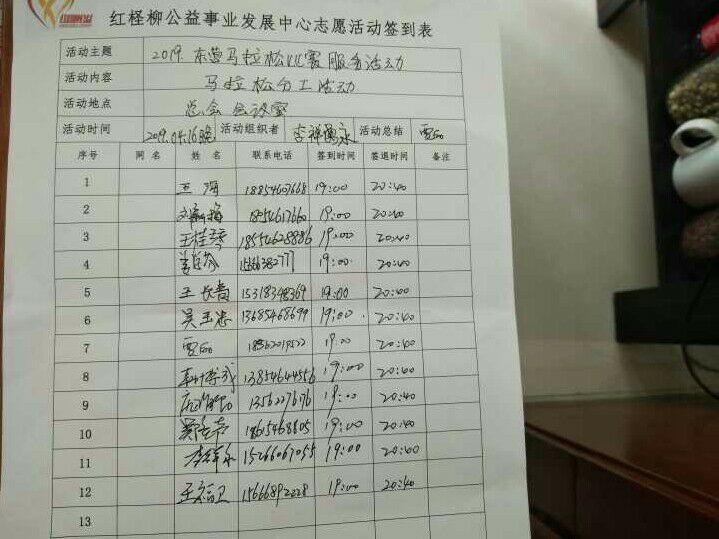 红柽柳公益事业发展中心志愿活动签到表
活动主题 2019.东营马拉松比赛服务活动
活动内容 马拉松分工活动
活动地点 总会会议室
活动时间 2019.04.16晚 活动组织者 李祥永 活动总结 贾
序号 网名 姓名 联系电话 签到时间 签退时间 备注
1 王 18854607668 19:00 20:40
2 刘 18554617660 19:00 20:40
3 王桂琴 18554628886 19:00 20:40
4 15663827771 19:00 20:40
5 王长青 15318348369 19:00 20:40
6 吴玉忠 13685468699 19:00 20:40
7 贾 19:00 20:40
8 13854644556 19:00 20:40
9 13562276176 19:00 20:40
10 18615468805 19:00 20:40
11 李祥永 15266067055 19:00 20:40
12 王 卫 15666892228 19:00 20:40
13